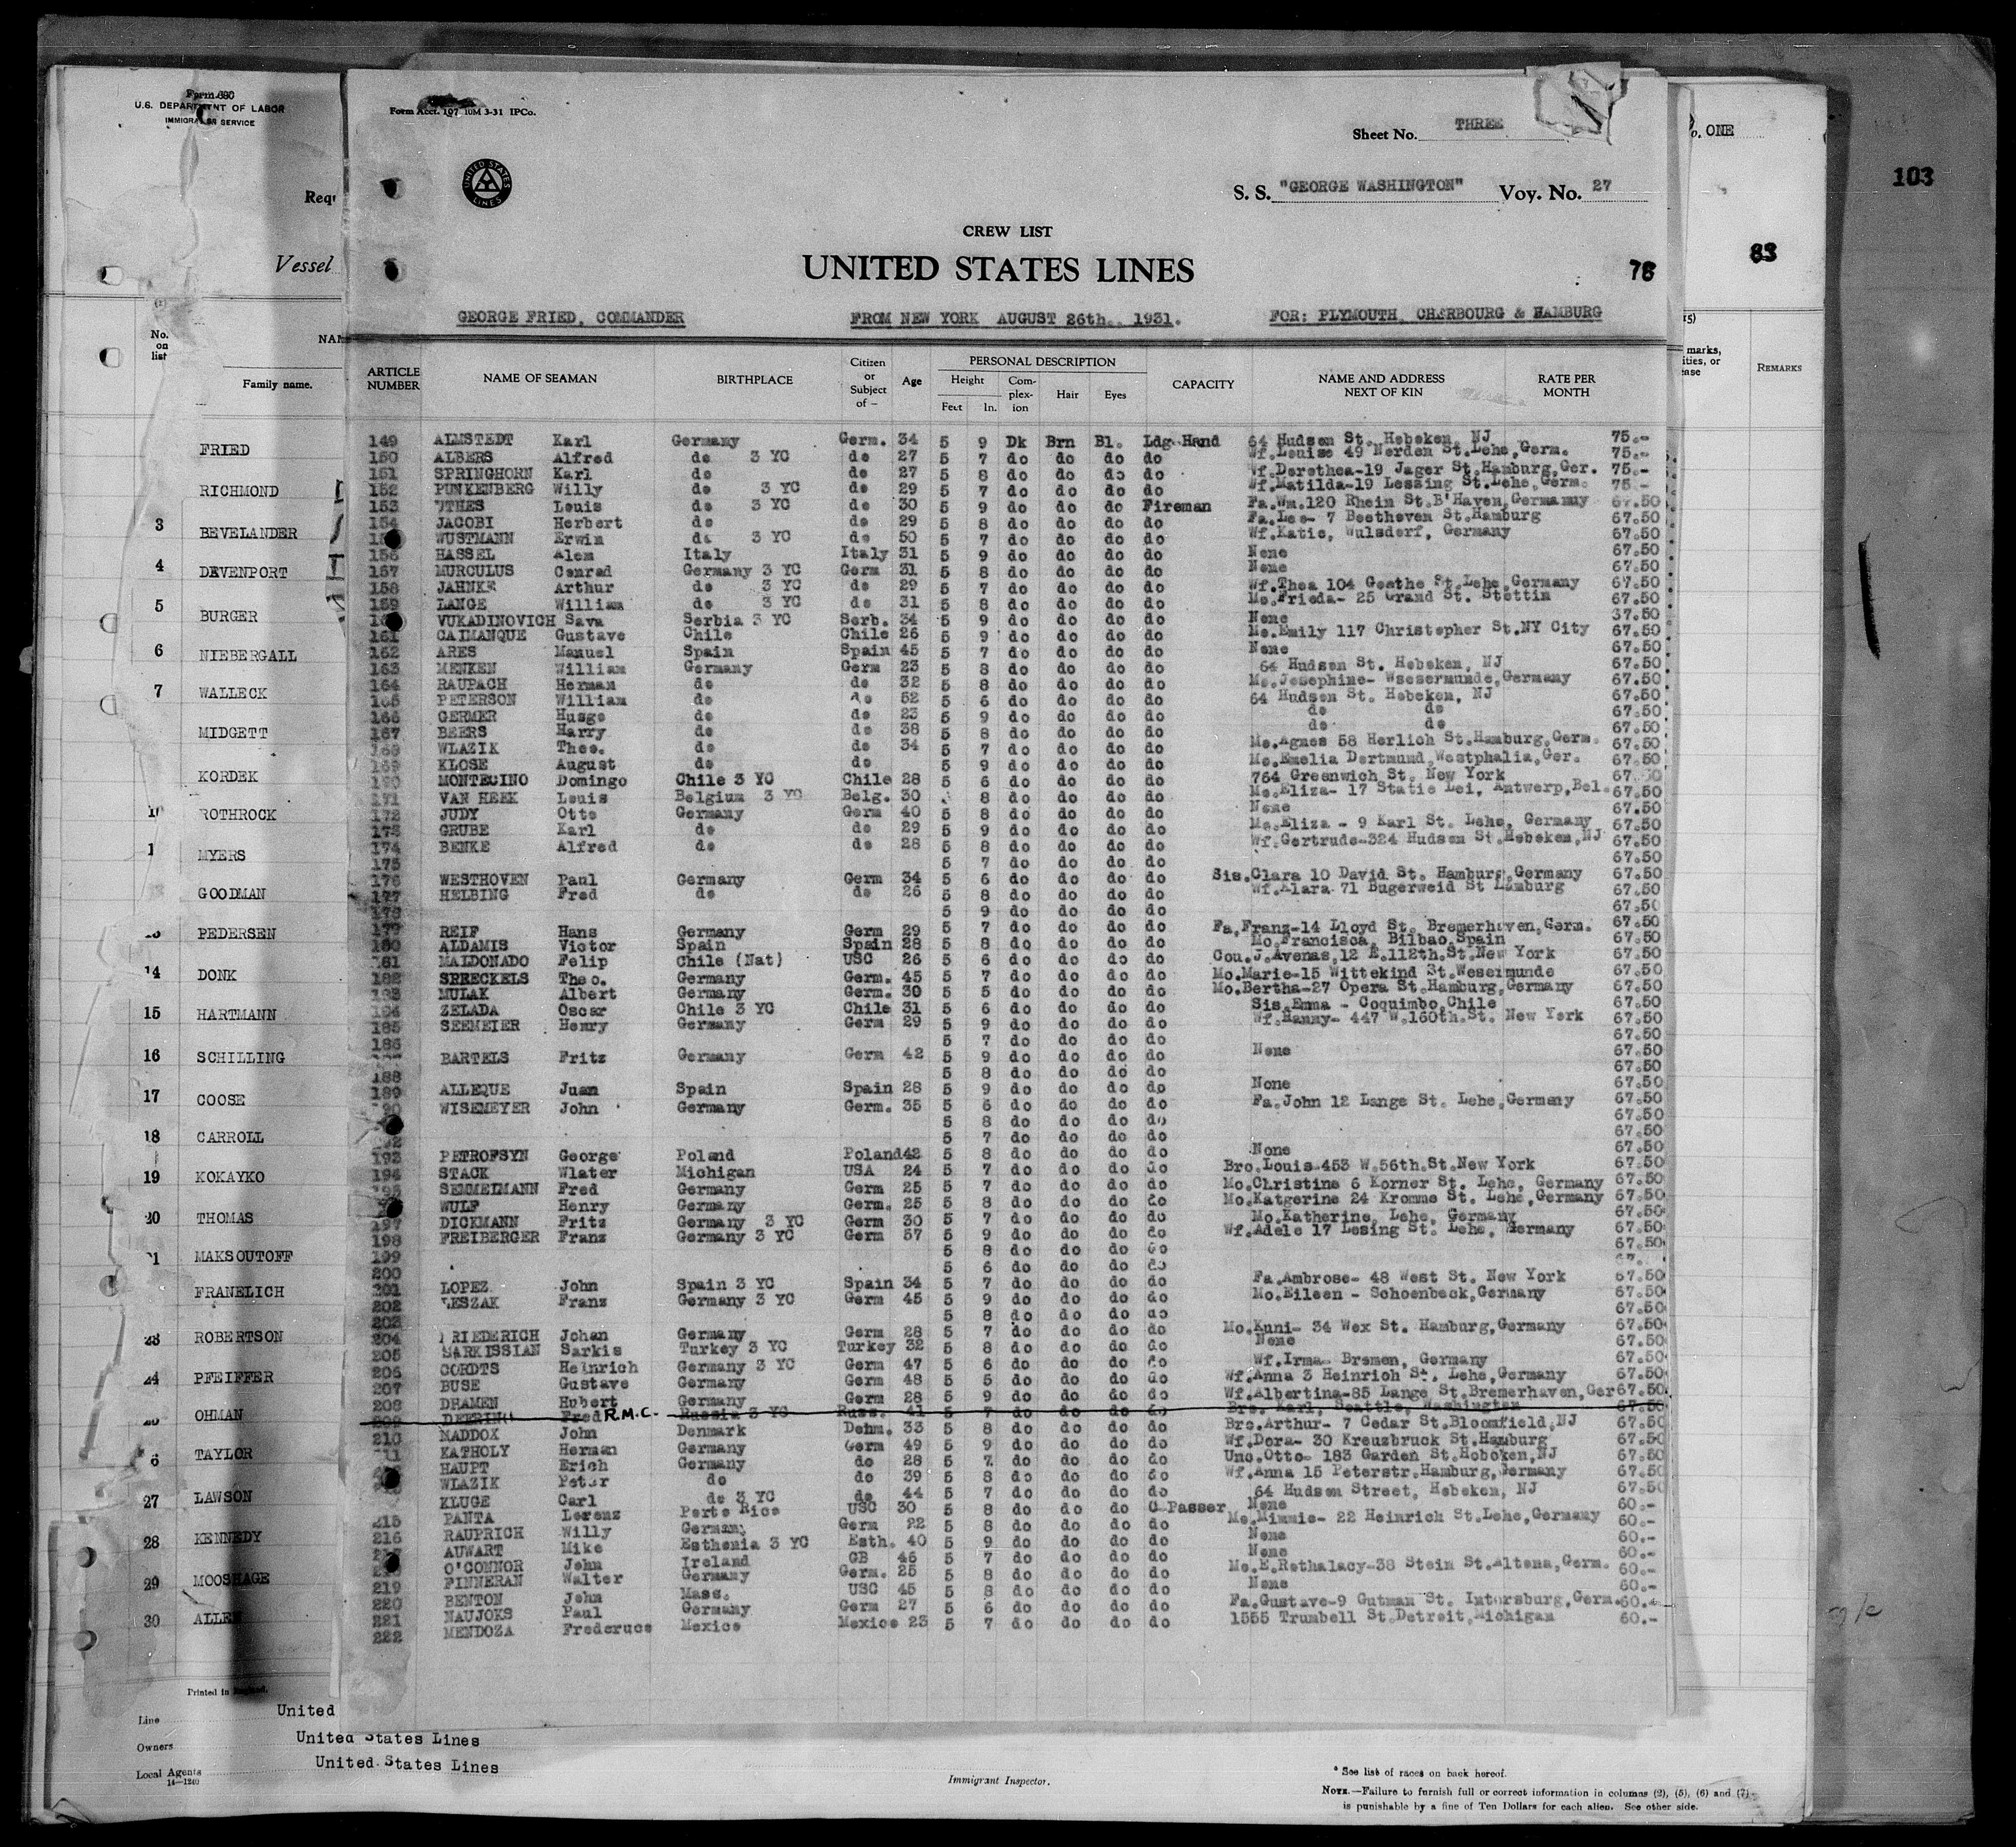 Form 680
U.S. DEPARTMENT OF LABOR
IMMIGRATION SERVICE
Form Acct. 107 10M 3-31 IPCo.
Sheet No. THREE
o. ONE
103
UNITED STATES LINES
S. S. "GEORGE WASHINGTON" Voy. No. 27
CREW LIST
UNITED STATES LINES
Vessel
76
83
GEORGE FRIED, COMMANDER FROM NEW YORK AUGUST 26th. 1931. FOR: PLYMOUTH, CHERBOURG & HAMBURG
No. on list
Family name.
ARTICLE NUMBER NAME OF SEAMAN BIRTHPLACE Citizen or Subject of – Age PERSONAL DESCRIPTION Height Feet In. Complexion Hair Eyes CAPACITY NAME AND ADDRESS NEXT OF KIN RATE PER MONTH
REMARKS
149 ALMSTEDT Karl Germany Germ. 34 5 9 Dk Brn Bl. Ldg Hand 64 Hudson St. Hoboken, NJ 75.-
150 ALBERS Alfred do 3 YC do 27 5 7 do do do do Wf.Louise 49 Norden St.Lehe,Germ. 75.-
151 SPRINGHORN Karl do do 27 5 8 do do do do Wf.Dorothea-19 Jager St.Hamburg,Ger. 75.-
152 PUNKENBERG Willy do 3 YC do 29 5 7 do do do do Wf.Matilda-19 Lessing St.Lehe,Germ. 75.-
153 Louis do 3 YC do 30 5 9 do do do Fireman Fa.Wm.120 Rhein St.B'Haven,Germany 67.50
154 JACOBI Herbert do do 29 5 8 do do do do Fa.Leo- 7 Beethoven St.Hamburg 67.50
WUSTMANN Erwin do 3 YC do 50 5 7 do do do do Wf.Katie, Wulsdorf, Germany 67.50
156 HASSEL Alem Italy Italy 31 5 9 do do do do None 67.50
157 MURCULUS Conrad Germany 3 YC Germ 31 5 8 do do do do None 67.50
158 JAHNKE Arthur do 3 YC do 29 5 7 do do do do Wf.Thea 104 Goethe St.Lehe,Germany 67.50
159 LANGE William do 3 YC do 31 5 8 do do do do Mo.Frieda- 25 Grand St. Stettin 67.50
VUKADINOVICH Sava Serbia 3 YC Serb. 34 5 9 do do do do None 37.50
161 CAIMANQUE Gustave Chile Chile 26 5 9 do do do do Mo.Emily 117 Christopher St.NY City 67.50
162 ARES Manuel Spain Spain 45 5 7 do do do do None 67.50
163 MENKEN William Germany Germ 23 5 8 do do do do 64 Hudson St. Hoboken, NJ 67.50
164 RAUPACH Herman do do 32 5 8 do do do do Mo.Josephine- Wsesermunde,Germany 67.50
165 PETERSON William do do 52 5 6 do do do do 64 Hudson St. Hoboken, NJ 67.50
166 GERMER Husgo do do 23 5 9 do do do do do do 67.50
167 BEERS Harry do do 38 5 8 do do do do do do 67.50
168 WLAZIK Theo. do do 34 5 7 do do do do Mo.Agnes 58 Herlich St.Hamburg,Germ. 67.50
169 KLOSE August do do 5 9 do do do do Mo.Emelia Dortmund,Westphalia,Ger. 67.50
190 MONTECINO Domingo Chile 3 YC Chile 28 5 6 do do do do 764 Greenwich St. New York 67.50
171 VAN HEEK Louis Belgium 3 YC Belg. 30 8 do do do do Mo.Eliza- 17 Statie Lei, Antwerp,Bel. 67.50
172 JUDY Otto Germany Germ 40 5 8 do do do do None 67.50
173 GRUBE Karl do do 29 5 9 do do do do Mo.Eliza - 9 Karl St. Lehe, Germany 67.50
174 BENKE Alfred do do 28 5 8 do do do do Wf.Gertrude-324 Hudson St.Hoboken,NJ 67.50
175 5 7 do do do do 67.50
176 WESTHOVEN Paul Germany Germ 34 5 6 do do do do Sis.Clara 10 David St. Hamburg,Germany 67.50
177 HELBING Fred do do 26 5 8 do do do do Wf.Klara 71 Bugerweid St Hamburg 67.50
178 5 9 do do do do 67.50
179 REIF Hans Germany Germ 29 5 7 do do do do Fa.Franz-14 Lloyd St. Bremerhaven,Germ. 67.50
180 ALDAMIS Victor Spain Spain 28 5 8 do do do do Mo.Francisca, Bilbao,Spain 67.50
181 MALDONADO Felip Chile (Nat) USC 26 5 6 do do do do Cou.J.Avenas,12 E.112th.St.New York 67.50
182 SPRECKELS Theo. Germany Germ. 45 5 7 do do do do Mo.Marie-15 Wittekind St.Wesermunde 67.50
183 MULAK Albert Germany Germ. 30 5 5 do do do do Mo.Bertha-27 Opera St.Hamburg,Germany 67.50
184 ZELADA Oscar Chile 3 YC Chile 31 5 6 do do do do Sis.Emma - Coquimbo,Chile 67.50
185 SEEMEIER Henry Germany Germ 29 5 9 do do do do Wf.Hanny- 447 W.160th.St. New York 67.50
186 5 7 do do do do 67.50
BARTELS Fritz Germany Germ 42 5 9 do do do do None 67.50
188 5 8 do do do do 67.50
189 ALLEQUE Juan Spain Spain 28 5 9 do do do do None 67.50
190 WISEMEYER John Germany Germ. 35 5 6 do do do do Fa.John 12 Lange St. Lehe,Germany 67.50
5 8 do do do do 67.50
192 5 7 do do do do 67.50
193 PETROFSYN George Poland Poland 42 5 8 do do do do None 67.50
194 STACK Wlater Michigan USA 24 5 7 do do do do Bro.Louis-453 W.56th.St.New York 67.50
195 SEMMELMANN Fred Germany Germ 25 5 7 do do do do Mo.Christine 6 Korner St. Lehe, Germany 67.50
WULF Henry Germany Germ. 25 5 8 do do do do Mo.Katgerine 24 Kromme St. Lehe,Germany 67.50
197 DICKMANN Fritz Germany 3 YC Germ 30 5 7 do do do do Mo.Katherine, Lehe, Germany 67.50
198 FREIBERGER Franz Germany 3 YC Germ 57 5 9 do do do do Wf.Adele 17 Lesing St. Lehe, Hermany 67.50
199 5 8 do do do do 67.50
200 5 6 do do do do 67.
201 LOPEZ John Spain 3 YC Spain 34 5 7 do do do do Fa.Ambrose- 48 West St. New York 67.50
202 LESZAK Franz Germany 3 YC Germ 45 5 9 do do do do Mo.Eileen - Schoenbeck,Germany 67.50
203 5 8 do do do do 67.50
204 FRIEDERICH Johan Germany Germ 28 5 7 do do do do Mo.Kuni- 34 Wex St. Hamburg,Germany 67.50
205 SARKISSIAN Sarkis Turkey 3 YC Turkey 32 5 8 do do do do None 67.50
206 CORDTS Heinrich Germany 3 YC Germ 47 5 6 do do do do Wf.Irma- Bremen, Germany 67.50
207 BUSE Gustave Germany Germ 48 5 5 do do do do Wf.Anna 3 Heinrich St. Lehe,Germany 67.50
208 DHAMEN Hubert Germany Germ 28 5 9 do do do do Wf.Albertina-85 Lange St.Bremerhaven,Ger 67.50
209 DEERING Fred R.M.C. Russia 3 YC Russ. 41 5 7 do do do do Bro. Karl, Seattle, Washington 67.50
210 MADDOX John Denmark Dehm. 33 5 8 do do do do Bro.Arthur- 7 Cedar St.Bloomfield,NJ 67.50
211 KATHOLY Herman Germany Germ 49 5 9 do do do do Wf.Dora- 30 Kreuzbruck St.Hamburg 67.50
HAUPT Erich Germany do 28 5 7 do do do do Unc.Otto- 183 Garden St.Hoboken,NJ 67.50
WLAZIK Peter do do 39 5 8 do do do do Wf.Anna 15 Peterstr.Hamburg,Germany 67.50
KLUGE Carl do 3 YC do 44 5 7 do do do do 64 Hudson Street, Hoboken, NJ 67.50
215 PANTA Lorenz Porto Rico USC 30 5 8 do do do C Passer None 60.-
216 RAUPRICH Willy Germany Germ 22 5 8 do do do do Mo.Minnie- 22 Heinrich St.Lehe,Germany 60.-
217 AUWART Mike Esthonia 3 YC Esth. 40 5 9 do do do do None 60.-
O'CONNOR John Ireland GB 46 5 7 do do do do None 60.-
219 FINNERAN Walter Germany Germ. 25 5 8 do do do do Mo.E.Rothalacy-38 Stein St.Altona,Germ. 60.-
220 BENTON John Mass. USC 45 5 8 do do do do None 60.-
221 NAUJOKS Paul Germany Germ 27 5 6 do do do do Fa.Gustave-9 Gutman St. Intersburg,Germ. 60.-
222 MENDOZA Frederuco Mexico Mexico 23 5 7 do do do do 1555 Trumbell St.Detroit,Michigan 60.-
FRIED
RICHMOND
3 BEVELANDER
4 DEVENPORT
5 BURGER
6 NIEBERGALL
7 WALLECK
MIDGETT
KORDEK
10 ROTHROCK
1 MYERS
GOODMAN
PEDERSEN
14 DONK
15 HARTMANN
16 SCHILLING
17 COOSE
18 CARROLL
19 KOKAYKO
20 THOMAS
21 MAKSOUTOFF
FRANELICH
23 ROBERTSON
24 PFEIFFER
OHMAN
6 TAYLOR
27 LAWSON
28 KENNEDY
29 MOOSHAGE
30 ALLEN
Printed in England.
Line United
Owners United States Lines
Local Agents United States Lines
14—1240
Immigrant Inspector.
* See list of races on back hereof.
NOTE.—Failure to furnish full or correct information in columns (2), (5), (6) and (7)
is punishable by a fine of Ten Dollars for each alien. See other side.